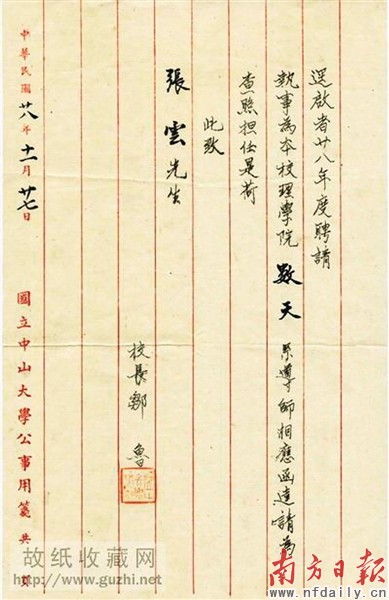 逕啟者廿八年度聘請
執事為本校理學院數天系導師相應函達請為
查照担任是荷
此致
張雲先生
校長鄒 魯
中華民國廿八年十一月廿七日 國立中山大學公事用箋 共 頁
故纸收藏网
http://www.guzhi.net
南方日报
www.nfdaily.cn